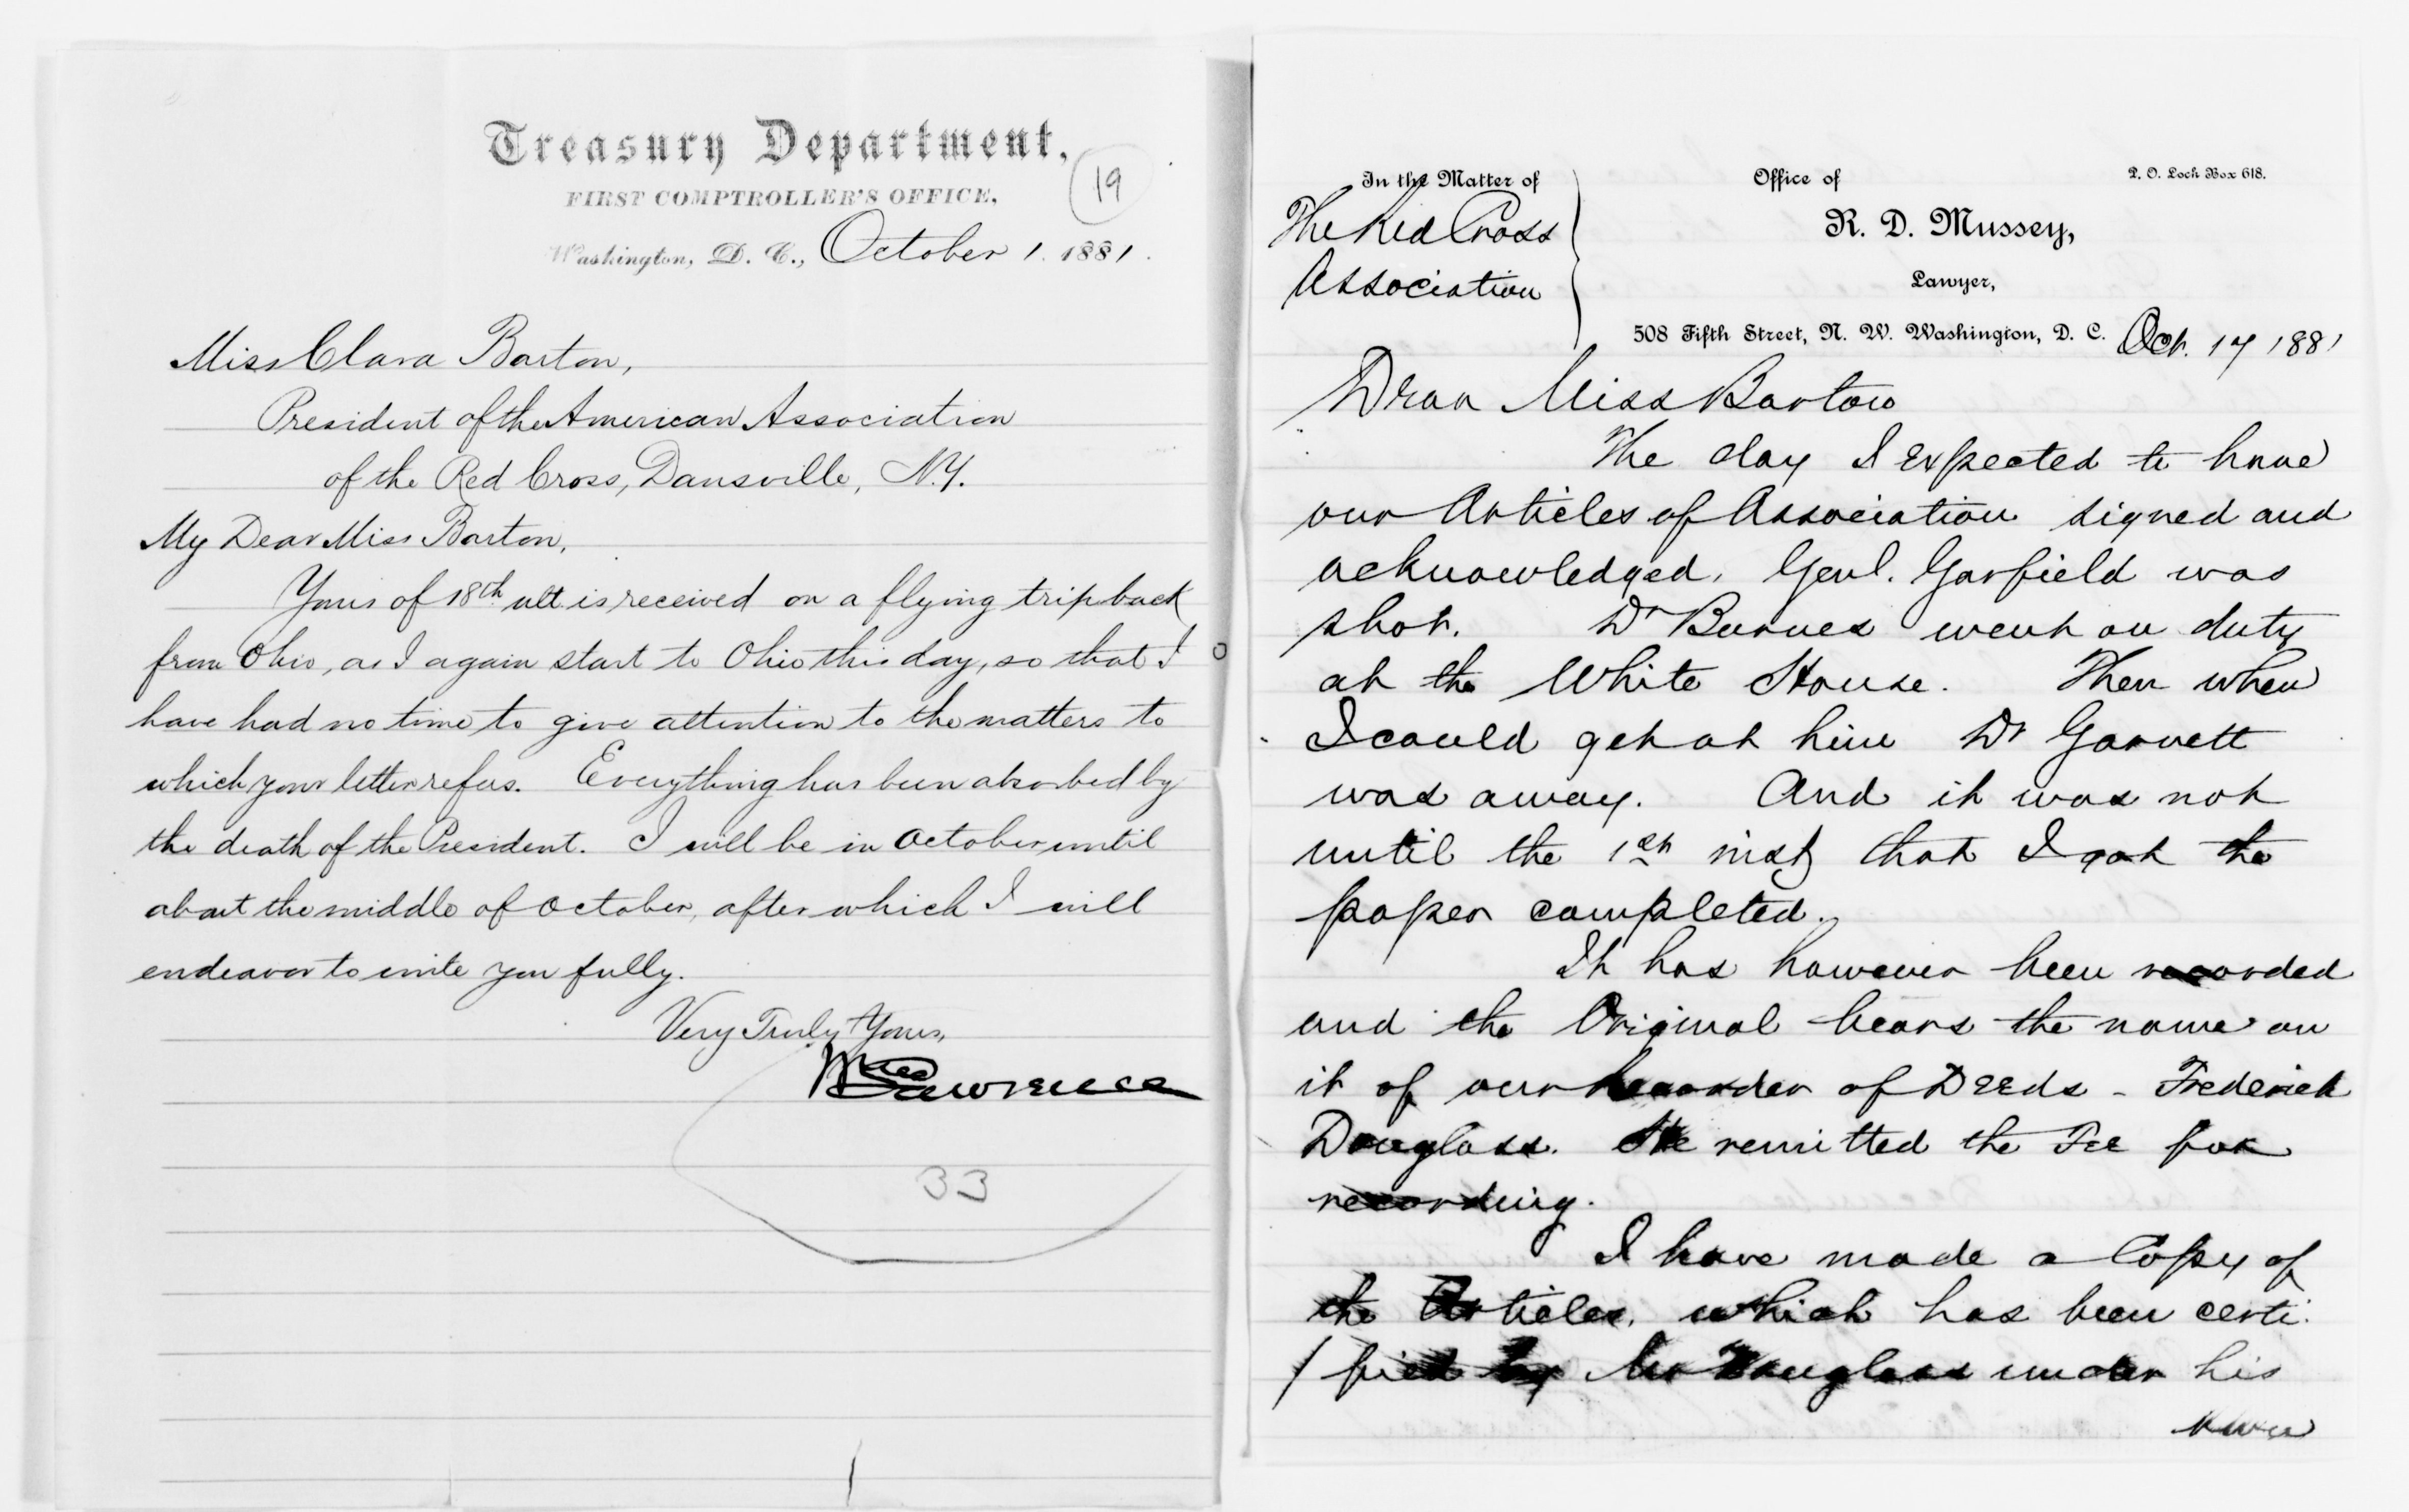 Treasury Department,
FIRST COMPTROLLER'S OFFICE,
19
Washington, D. C., October 1. 1881.
Miss Clara Barton,
President of the American Association
of the Red Cross, Dansville, N.Y.
My Dear Miss Barton,
Yours of 18th ult. is received on a flying trip back
from Ohio, as I again start to Ohio this day, so that I
have had no time to give attention to the matters to
which your letter refers. Everything has been absorbed by
the death of the President. I will be in October until
about the middle of October, after which I will
endeavor to write you fully.
Very Truly Yours,
Wm Lawrence
33
In the Matter of
The Red Cross
Association
Office of
P. O. Lock Box 618.
R. D. Mussey,
Lawyer,
508 Fifth Street, N. W. Washington, D. C. Oct. 17 1881
Dear Miss Barton
The day I expected to have
our Articles of Association signed and
acknowledged, Genl. Garfield was
shot. Dr Barnes went on duty
at the White House. Then when
I could get at him Dr Garnett
was away. And it was not
until the 1st inst that I got the
paper completed.
It has however been recorded
and the Original bears the name on
it of our Recorder of Deeds - Frederick
Douglass. He remitted the Fee for
recording.
I have made a Copy of
the Articles, which has been certi
fied by Mr Douglass under his
own